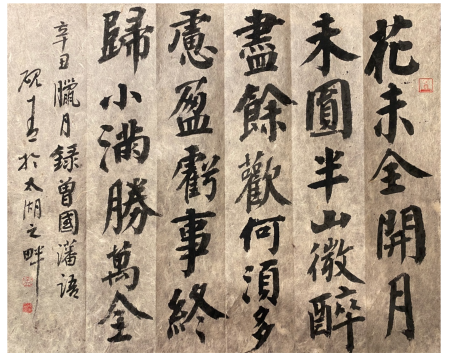 花未全開月
未圓半山微醉
盡餘歡何須多
慮盈虧事終
歸小滿勝萬全
辛丑臘月録曾國藩語
硯於太湖之畔